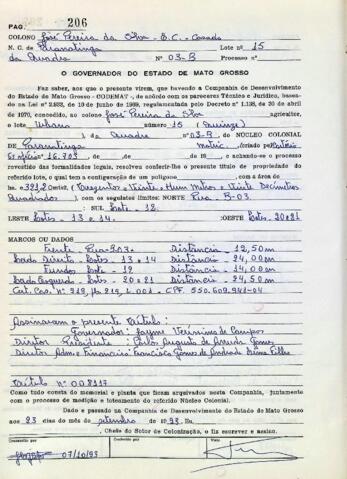 PAG. 206
COLONO José Pereira da Silva - B.C. - Casado
N. C. de Paranatinga Lote nº 15
da Quadra Nº 03-B Processo nº
O GOVERNADOR DO ESTADO DE MATO GROSSO
Faz saber, aos que o presente virem, que havendo a Companhia de Desenvolvimento
do Estado de Mato Grosso - CODEMAT - de acôrdo com os pareceres Técnico e Jurídico, basea-
do na Lei nº 2.883, de 19 de junho de 1969, regulamentada pelo Decreto nº 1.138, de 30 de abril
de 1970, concedido ao colono José Pereira da Silva agricultor,
o lote Urbano número 15 (Quinze)
da Quadra nº 03-B, do NÚCLEO COLONIAL
de Paranatinga criado
16.703 de de 19 e achando-se o processo
revestido das formalidades legais, resolveu conferir-lhe o presente título de propriedade do
referido lote, o qual tem a configuração de um polígono com a área de
Metros e Vinte Decímetros
Quadrados), com os seguintes limites: NORTE Rua B-03
SUL Lote 12
LESTE Lotes 13 e 14. OESTE Lotes 20 e 21
MARCOS OU DADOS
Frente - Rua - B-03 - Distância - 12,50m
Lado Direito - Lotes - 13 e 14 Distância - 24,00m
Fundos - Lote - 12 Distância - 14,00m
Lado Esquerdo - Lotes - 20 e 21 - Distância - 24,50m
Assinaram o presente título:
Governador: Jayme Veríssimo de Campos
Diretor Presidente: Augusto de Arruda Gomes
Diretor Adm. e Financeiro: Francisco Gomes de Andrade Lima Filho
Título Nº 008117
Como tudo consta do memorial e planta que ficam arquivados nesta Companhia, juntamente
com o processo de medição e loteamento do referido Núcleo Colonial.
Dado e passado na Companhia de Desenvolvimento do Estado do Mato Grosso
aos 23 dias do mês de setembro de 1993. Eu
Chefe do Setor de Colonização, o fiz escrever e assino.
Conferido por Visto
07/10/93